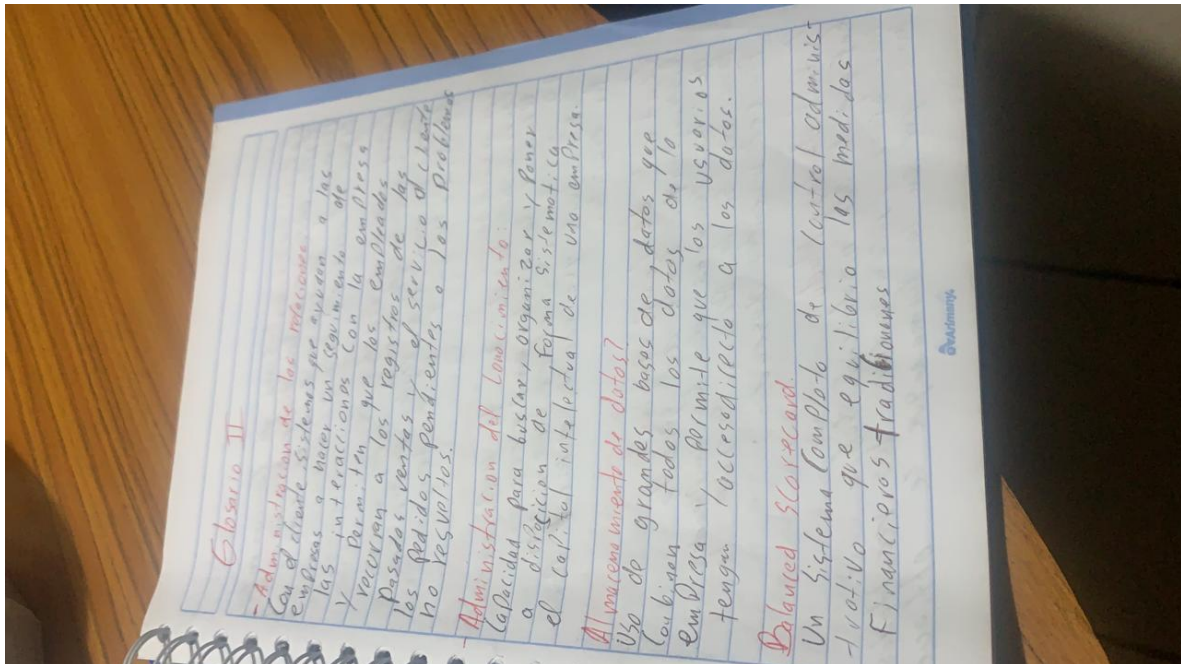 Glosario II
- Administracion de las relaciones
Con el cliente sistemas que ayudan a las
empresas a hacer un seguimiento de
las interacciones con la empresa
y Permiten que los empleados
recurran a los registros de las
Pasadas ventas y el servicio al cliente
los Pedidos pendientes o los problemas
no resueltos.
- Administracion del Conocimiento:
Capacidad para buscar, organizar y Poner
a disposicion de Forma sistematica
el capital intelectual de una empresa.
Almacenamiento de datos?
Uso de grandes bases de datos que
Combinan todos los datos de la
empresa y permite que los usuarios
tengan accesodirecto a los datos.
Balanced scorecard
Un sistema Completo de control adminis-
trativo que equilibria las medidas
Financieros tradicionones